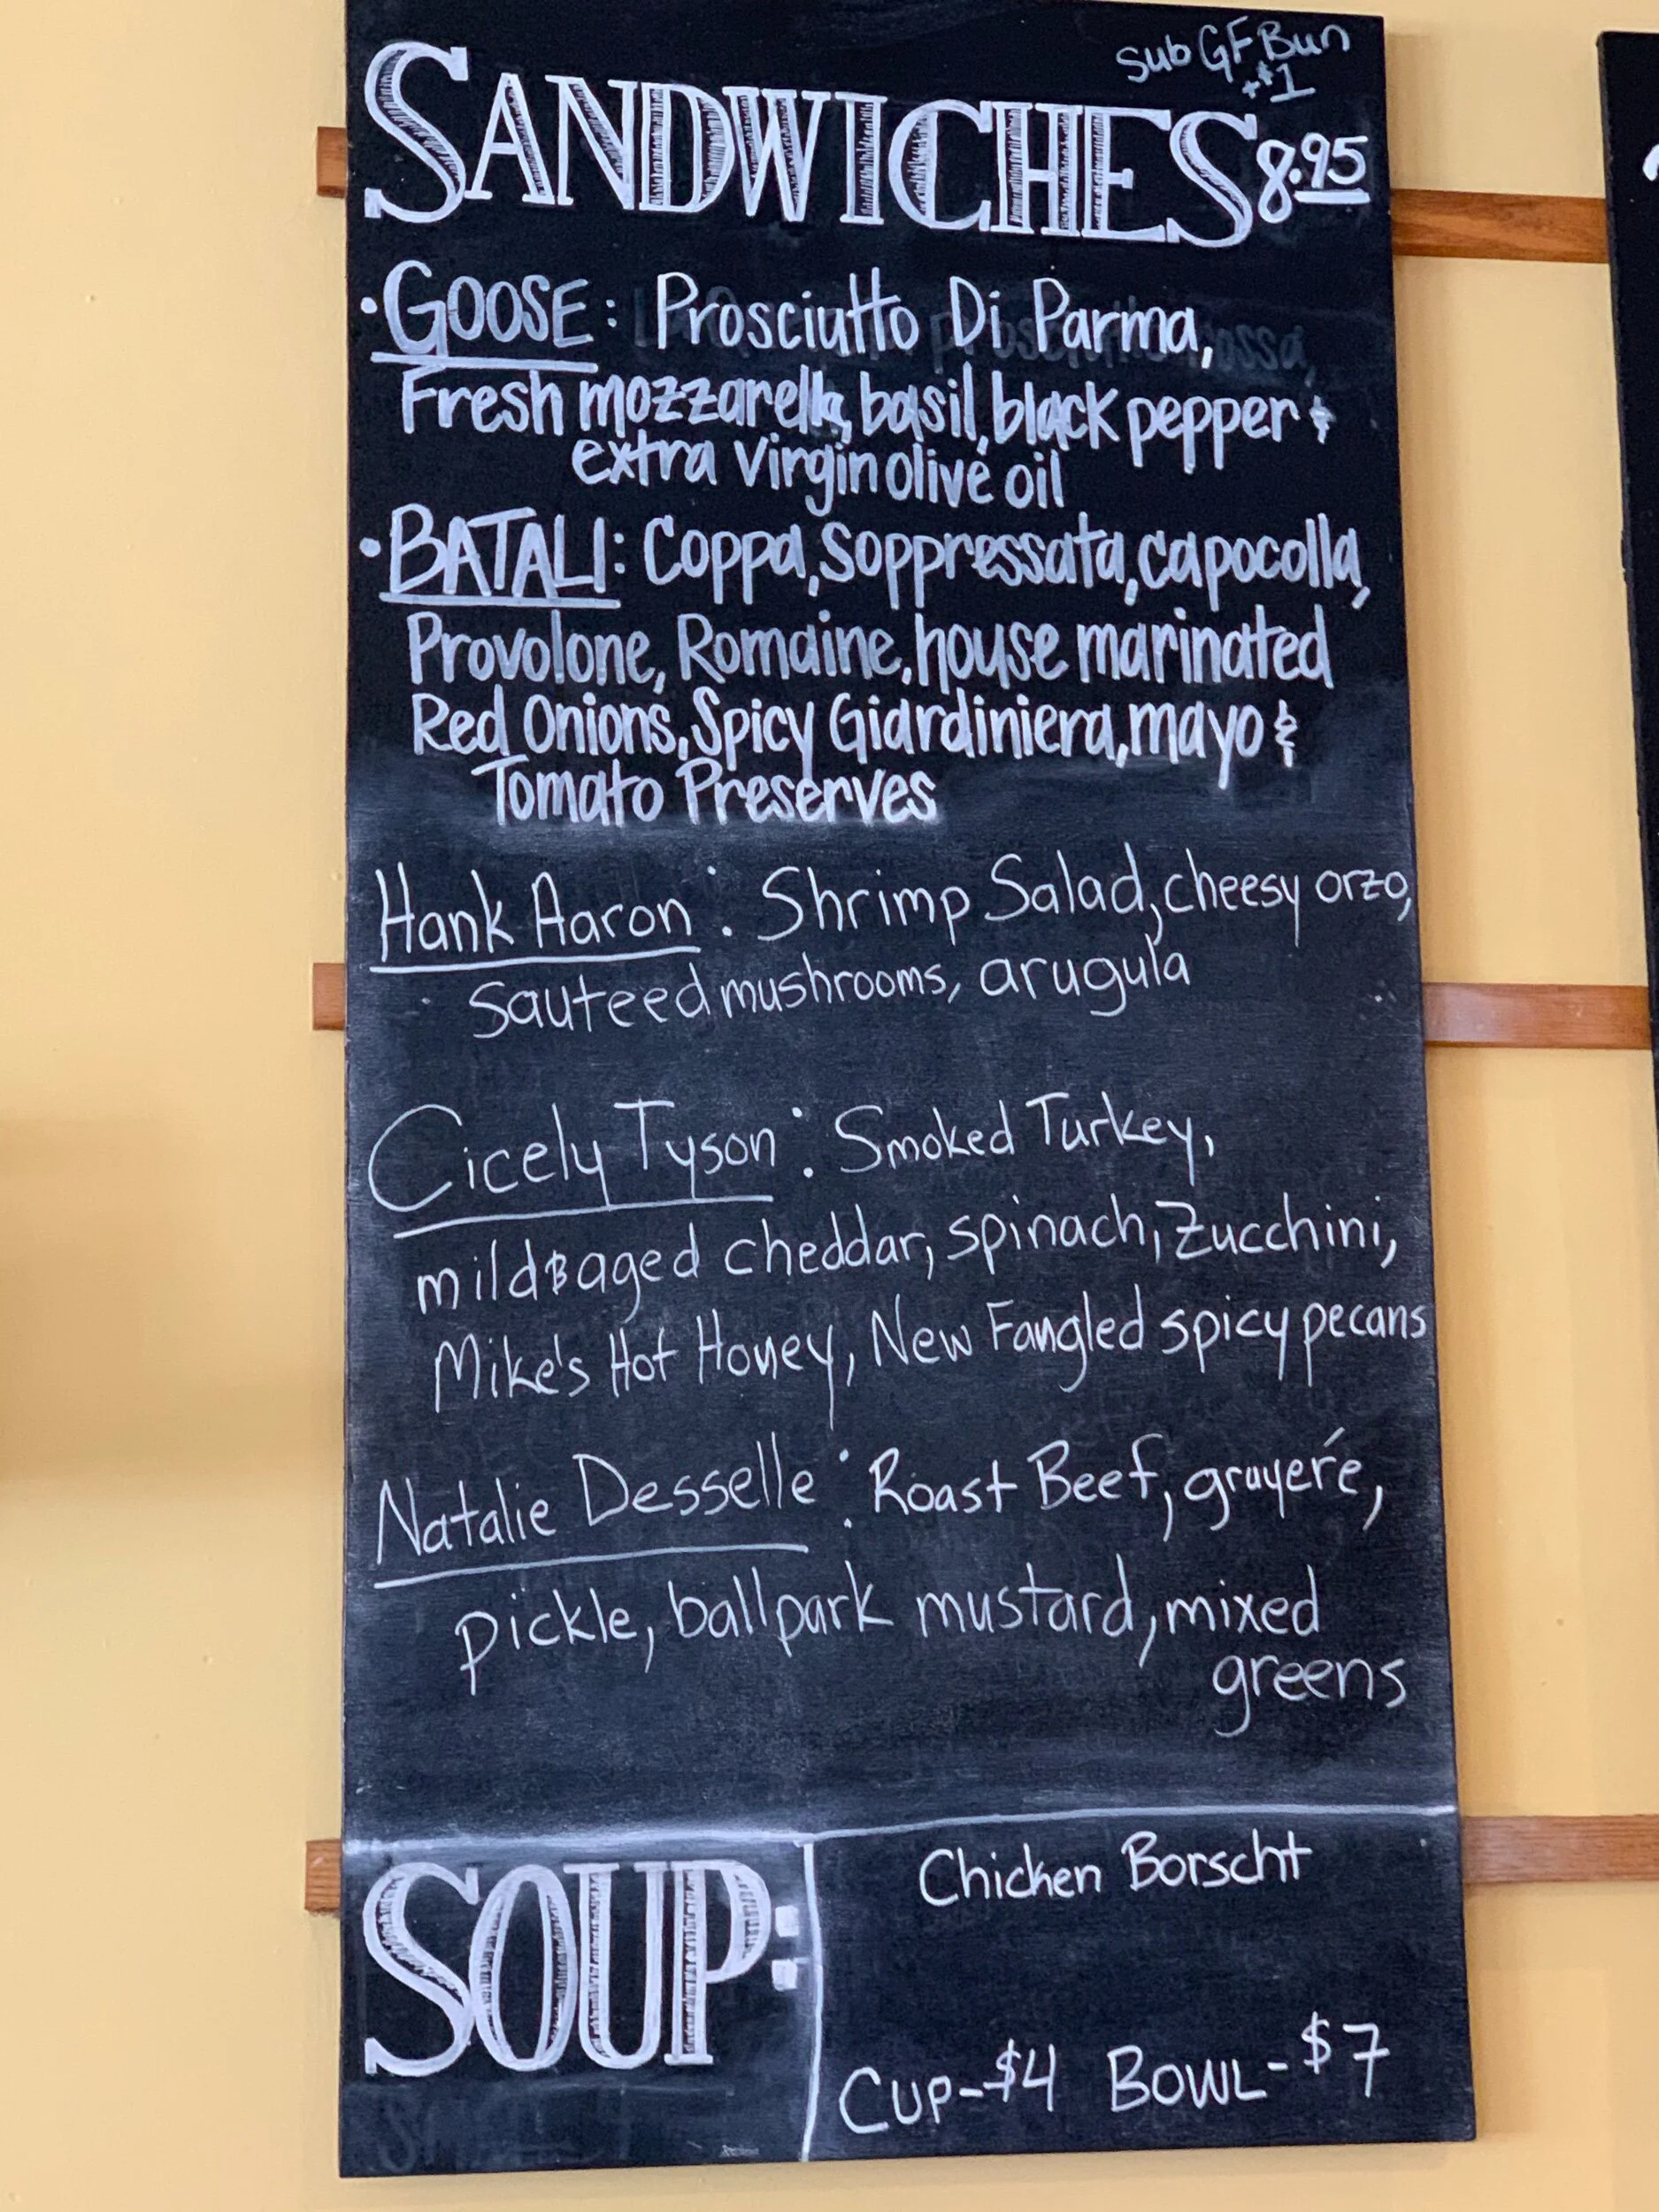 Sub GF Bun
+$1
SANDWICHES 8.95
•GOOSE: Prosciutto Di Parma,
Fresh mozzarella, basil, black pepper &
extra virgin olive oil
•BATALI: Coppa, Soppressata, capocolla,
Provolone, Romaine, house marinated
Red Onions, Spicy Giardiniera, mayo &
Tomato Preserves
Hank Aaron: Shrimp Salad, cheesy orzo,
sauteed mushrooms, arugula
Cicely Tyson: Smoked Turkey,
mild aged cheddar, spinach, zucchini,
Mike's Hot Honey, New Fangled spicy pecans
Natalie Desselle: Roast Beef, gruyeré,
pickle, ballpark mustard, mixed
greens
SOUP:
Chicken Borscht
Cup-$4 BOWL-$7